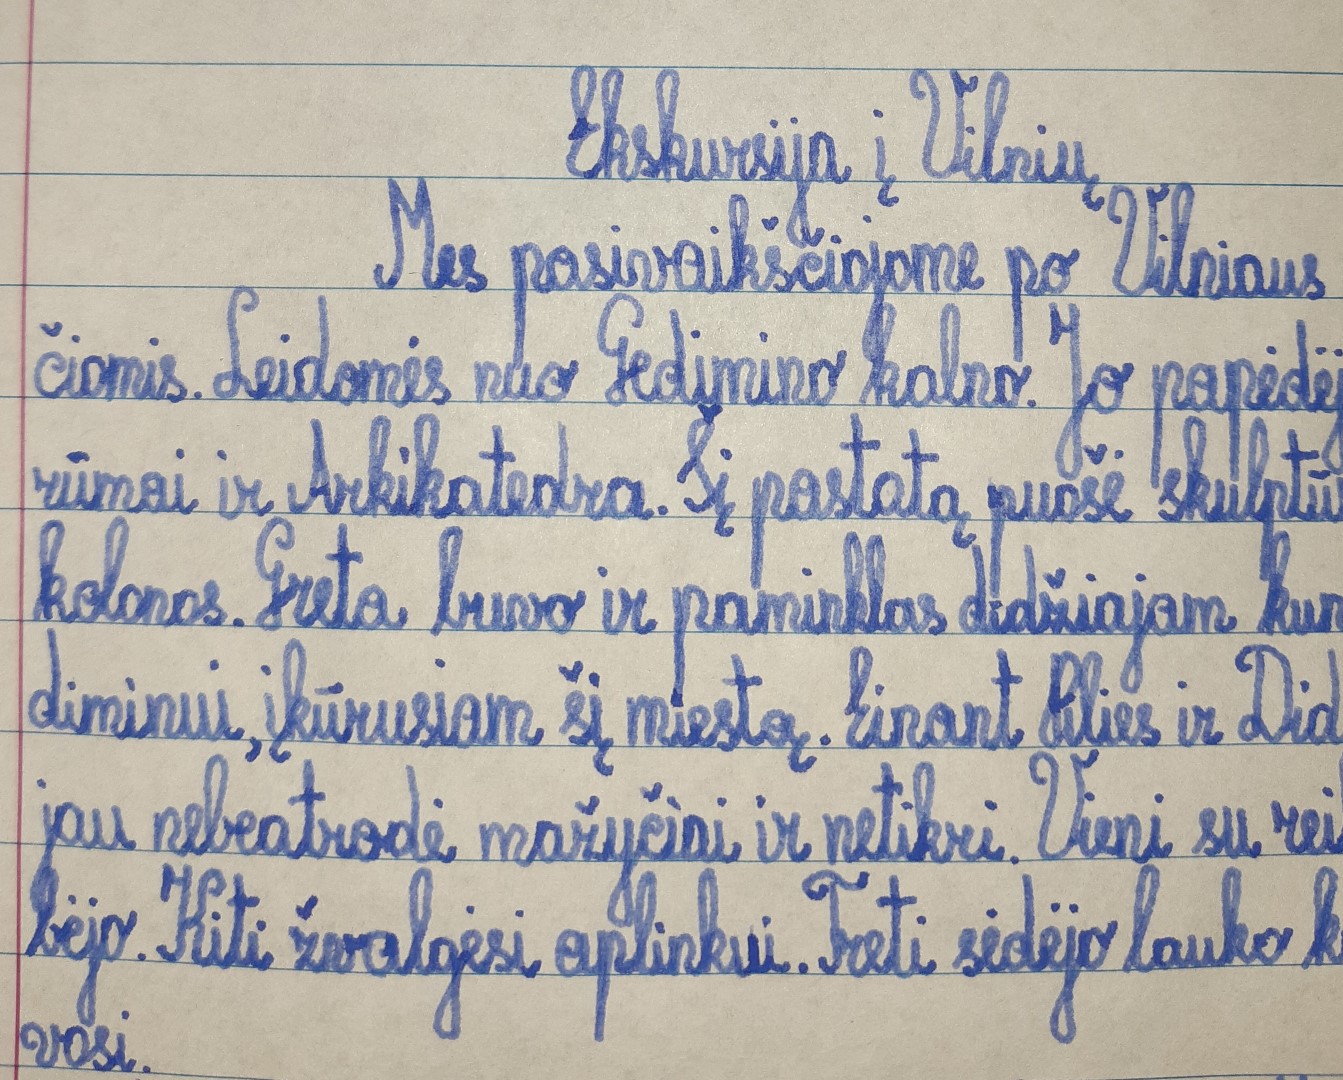 Ekskursija į Vilnių
Mes pasivaikščiojome po Vilniaus
čiomis. Leidomės nuo Gedimino kalno. Jo papėdėj
rūmai ir Arkikatedra. Šį pastatą puošė skulptū
kolonos. Greta buvo ir paminklas didžiajam kun
diminui, įkūrusiam šį miestą. Einant Pilies ir Did
jau nebeatrodė mažyčiai ir netikri. Vieni su rei
bėjo. Kiti žvalgėsi aplinkui. Treti sėdėjo lauko k
vosi.